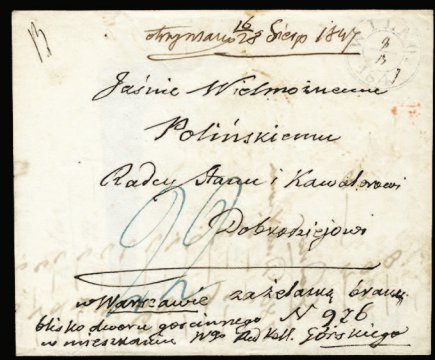 otrzymano 16/28 Sierp 1847
Jaśnie Wielmożnemu
Polińskiemu
Radcy Stanu i Kawalerowi
Dobrodziejowi
w Warszawie za żelazną bramą
blisko dworu gościnnego N 926
w mieszkaniu Wgo Górskiego